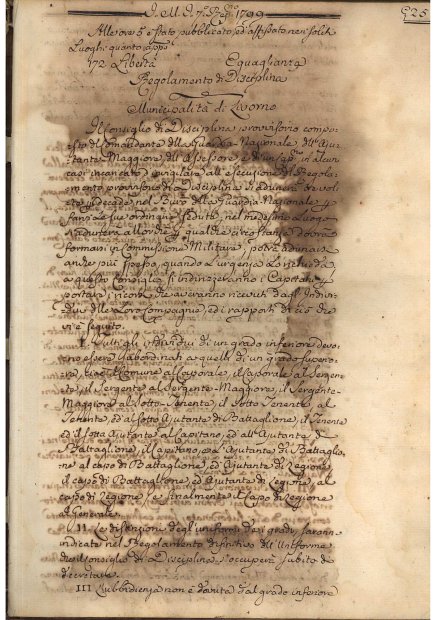 925
Alle ore 5 è stato pubblicato, ed affissato nei soliti
Luoghi quanto app.o
172 Libertà Eguaglianza
Regolamento di Disciplina
Municipalità di Livorno
Il Consiglio di Disciplina provvisorio compo-
sto del Comandante della Guardia Nazionale, dell'Aju-
tante Maggiore, dell'Assessore, e di un in alcuni
casi incaricato di vigilare all'esecuzione del Regola-
mento provvisorio di Disciplina si adunerà due vol-
te la Decade, nel Burò della Guardia Nazionale
fare le sue ordinarie sedute, nel medesimo Luogo
s'adunerà allorchè qualche circostanza dovrà
formarsi in Commissione Militare, potrà adunarsi
anche più spesso, quando l'urgenza Lo richieda,
a questo Consiglio s'indirizzeranno i Capitani
portarvi i ricorsi, che averanno ricevuti dagl'Indivi-
dui delle Loro Compagnie, ed i rapporti di ciò che
vi è seguito.
I. Tutti gli individui di un grado inferiore devo-
no essere subordinati a quelli di un grado superio-
re, cioè il Comune al Caporale, il Caporale al Sergen-
te, il Sergente al Sergente-Maggiore, il Sergente-
Maggiore al Sotto-Tenente, il Sotto-Tenente, al
Tenente, ed al Sotto Ajutante di Battaglione, il Tenente
ed il Sotto Ajutante al Capitano, ed all'Ajutante di
Battaglione, il Capitano, e l'Ajutante di Battaglio-
ne al Capo di Battaglione, ed Ajutante di Legione,
il Capo di Battaglione, ed Ajutante di Legione, al
Capo di Legione, e finalmente il Capo di Legione
al Generale.
II. Le distinzioni degl'uniformi, e dei gradi saranno
indicate nel Regolamento dell'Uniforme
di cui il Consiglio di Disciplina s'occuperà subito a
decretare.
III Subordinazione non è dovuta al grado inferiore